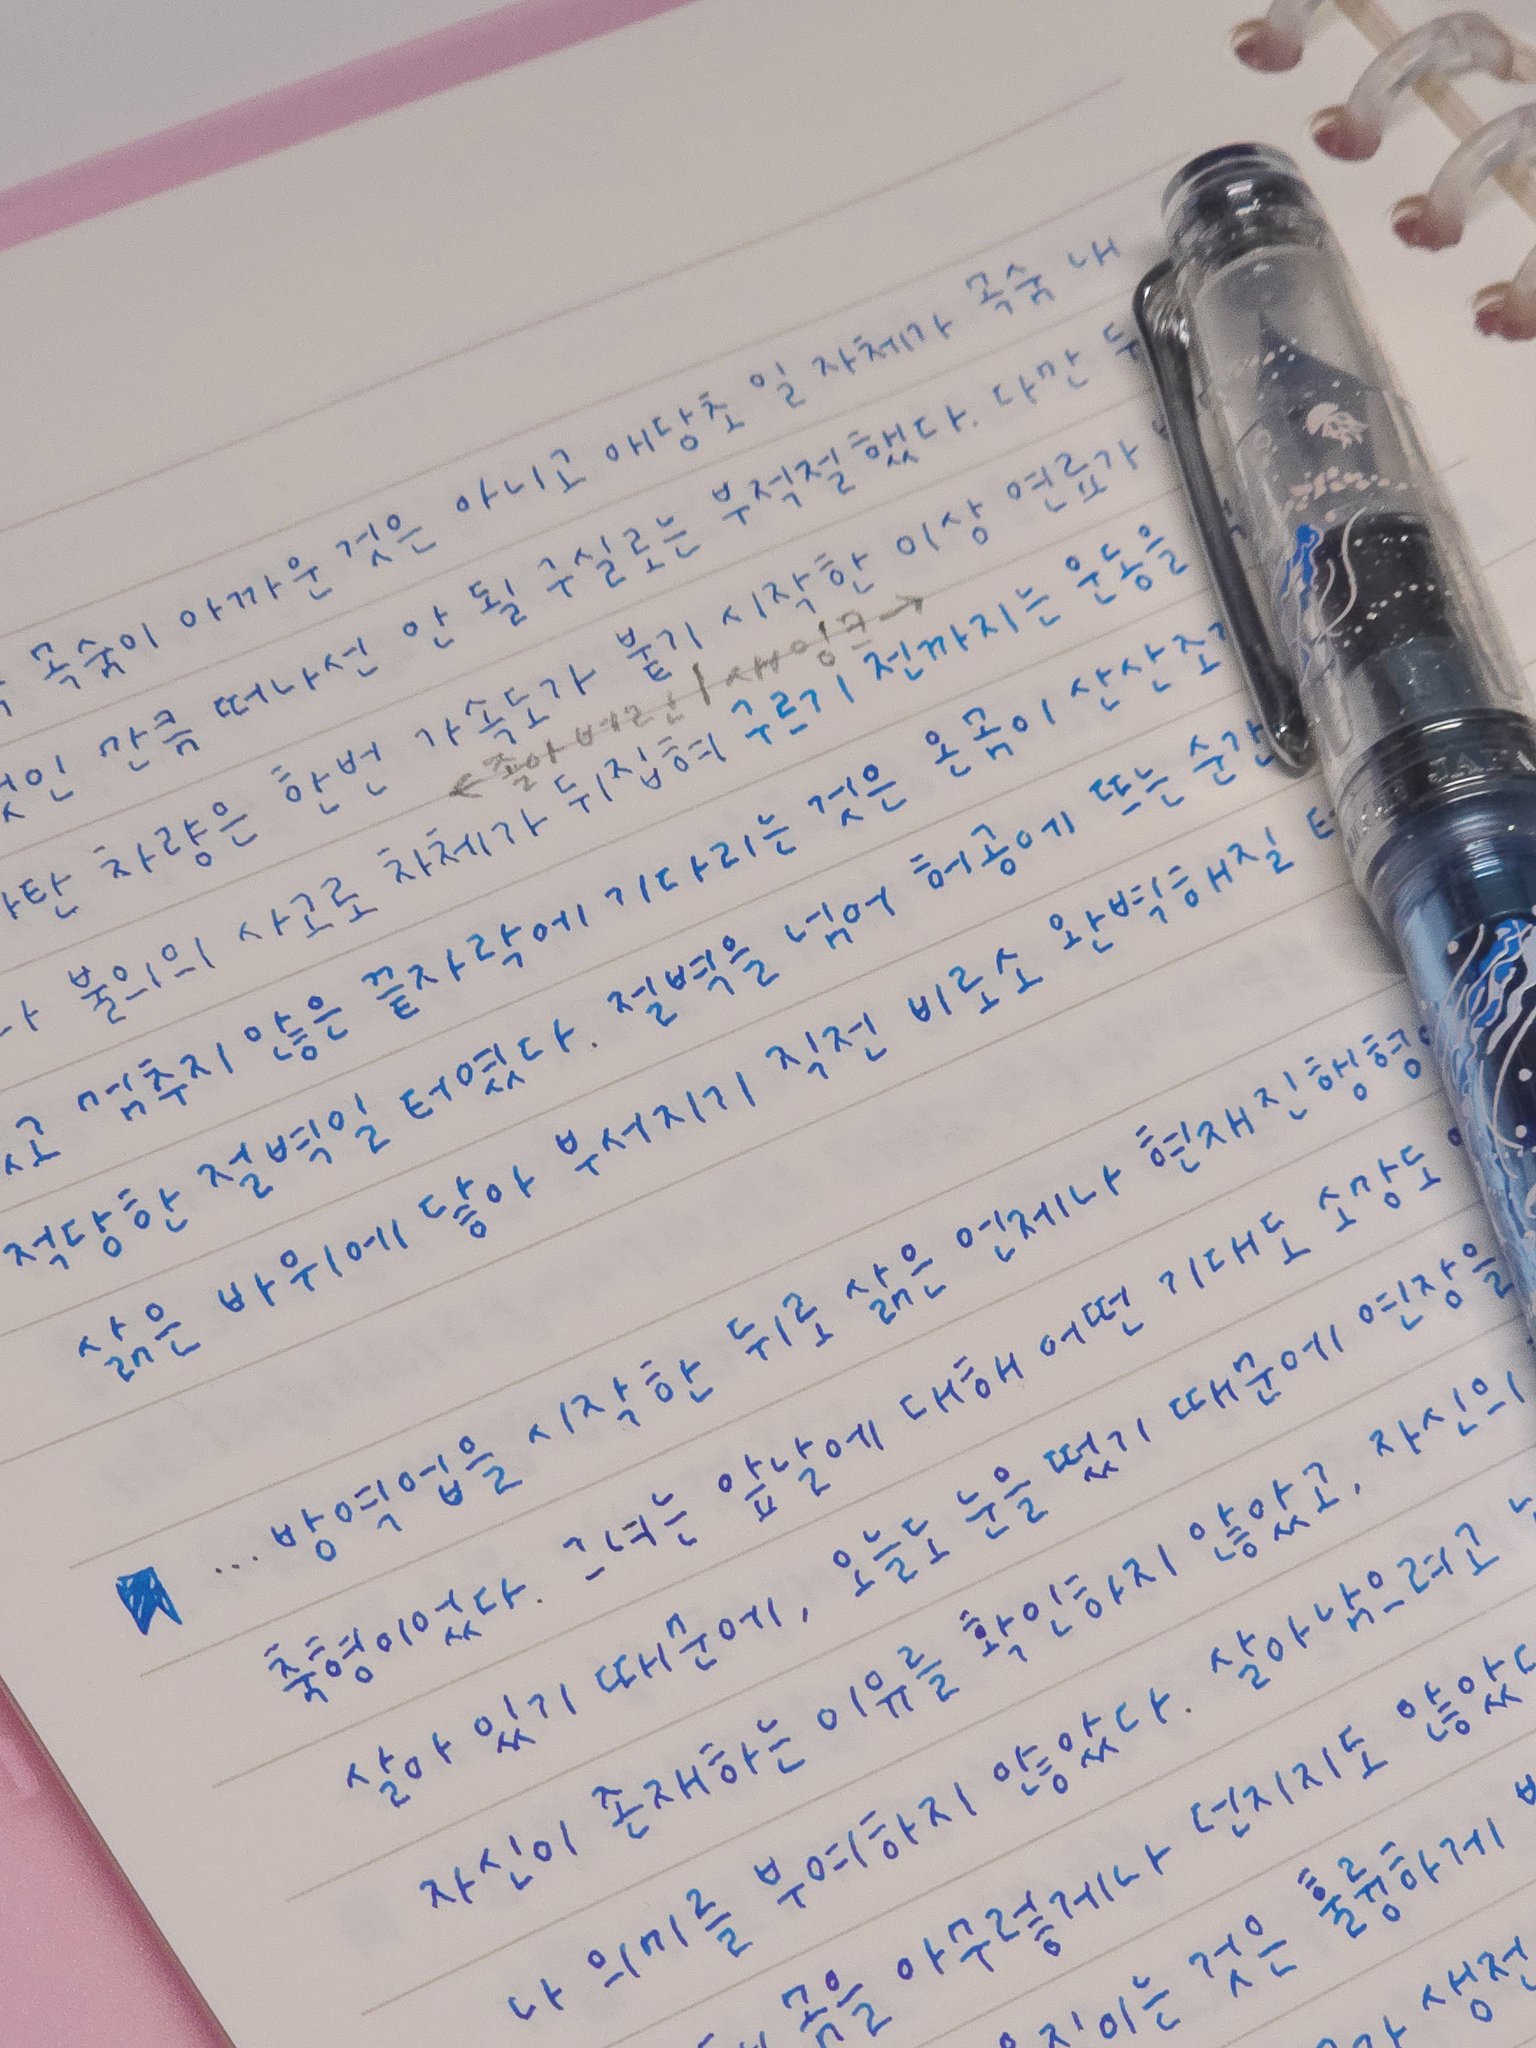 목숨이 아까운 것은 아니고 애당초 일 자체가 목숨 내
만큼 떠나선 안 될 구실로는 부적절했다. 다만
차량은 한번 가속도가 붙기 시작한 이상 연료가
← 졸아버린 | 새잉크 →
불의의 사고로 차체가 뒤집혀 구르기 전까지는 운동을
멈추지 않은 끝자락에 기다리는 것은 온몸이 산산조
적당한 절벽일 터였다. 절벽을 넘어 허공에 뜨는 순간
삶은 바위에 닿아 부서지기 직전 비로소 완벽해질 터
... 방역업을 시작한 뒤로 삶은 언제나 현재진행형
죽형이었다. 그녀는 앞날에 대해 어떤 기대도 소망도
살아 있기 때문에, 오늘도 눈을 떴기 때문에 연장을
자신이 존재하는 이유를 확인하지 않았고, 자신의
나 의미를 부여하지 않았다. 살아남으려고
몸을 아무렇게나 던지지도 않았다
움직이는 것은 훌륭하게
생전